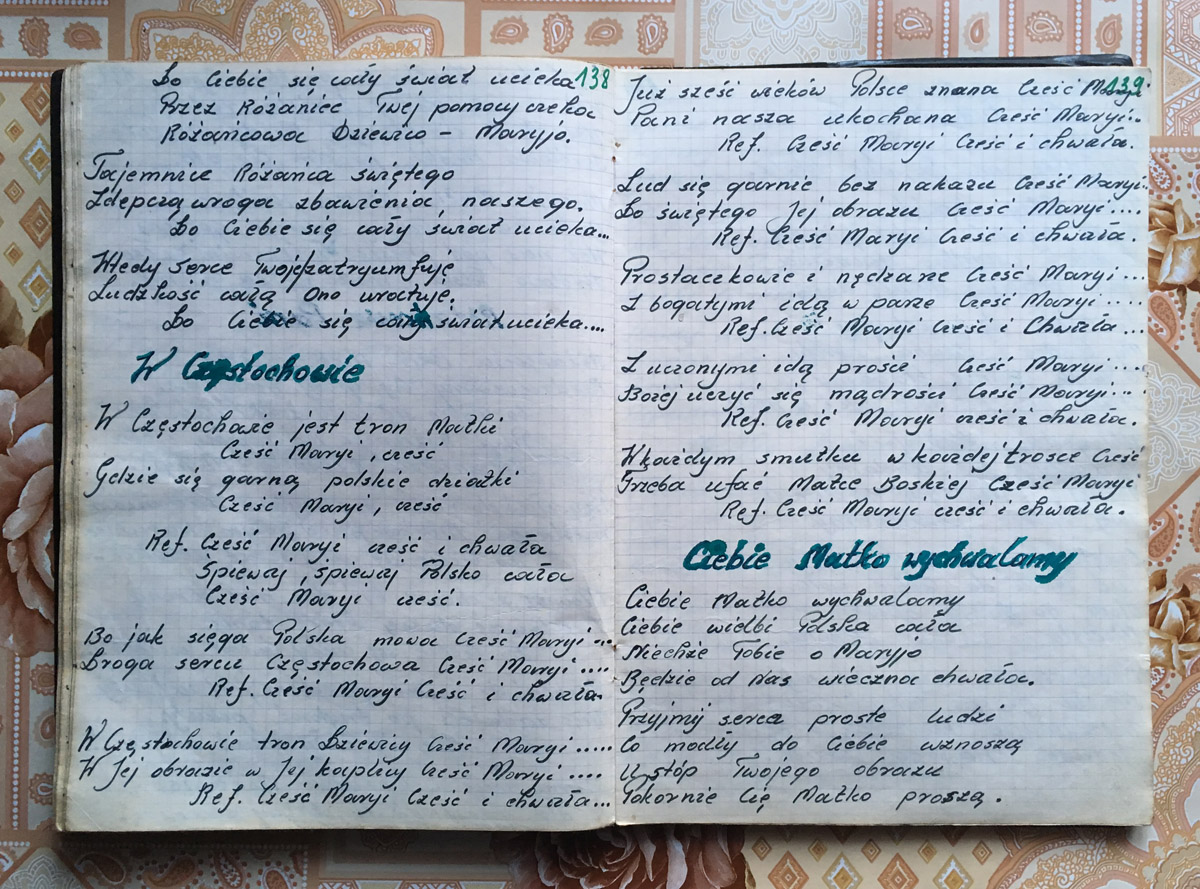 138
Do Ciebie się cały świat ucieka
Przez Różaniec Twej pomocy czeka
Różańcowa Dziewico - Maryjo.
Tajemnice Różańca świętego
Zdepczą wroga zbawienia, naszego.
Do Ciebie się cały świat ucieka...
Wtedy serce Twoje zatryumfuje
Ludzkość całą Ono uratuje.
Do Ciebie się cały świat ucieka....
W Częstochowie
W Częstochowie jest tron Matki
Cześć Maryi, cześć
Gdzie się garną polskie dziatki
Cześć Maryi, cześć
Ref. Cześć Maryi cześć i chwała
Śpiewaj, śpiewaj Polsko cała
Cześć Maryi cześć.
Bo jak sięga Polska mowa Cześć Maryi...
Droga sercu Częstochowa Cześć Maryi....
Ref. Cześć Maryi Cześć i chwała
W Częstochowie tron Dziewicy Cześć Maryi.....
W Jej obrazie w Jej kaplicy Cześć Maryi....
Ref. Cześć Maryi Cześć i chwała...
139
Już sześć wieków Polsce znana Cześć Maryi
Pani nasza ukochana Cześć Maryi..
Ref. Cześć Maryi Cześć i chwała.
Lud się garnie bez nakazu Cześć Maryi..
Do świętego Jej obrazu Cześć Maryi....
Ref. Cześć Maryi Cześć i chwała.
Prostaczkowie i nędzarze Cześć Maryi...
Z bogatymi idą w parze Cześć Maryi....
Ref. Cześć Maryi Cześć i Chwała...
Z uczonymi idą prości Cześć Maryi...
Bożej uczyć się mądrości Cześć Maryi...
Ref. Cześć Maryi cześć i chwała.
W każdym smutku w każdej trosce Cześć
Trzeba ufać Matce Boskiej Cześć Maryi
Ref. Cześć Maryi cześć i chwała.
Ciebie Matko wychwalamy
Ciebie Matko wychwalamy
Ciebie wielbi Polska cała
Niechże Tobie o Maryjo
Będzie od Nas wieczna chwała.
Przyjmij serca proste ludzi
Co modły do Ciebie wznoszą
U stóp Twojego obrazu
Pokornie Cię Matko proszą.